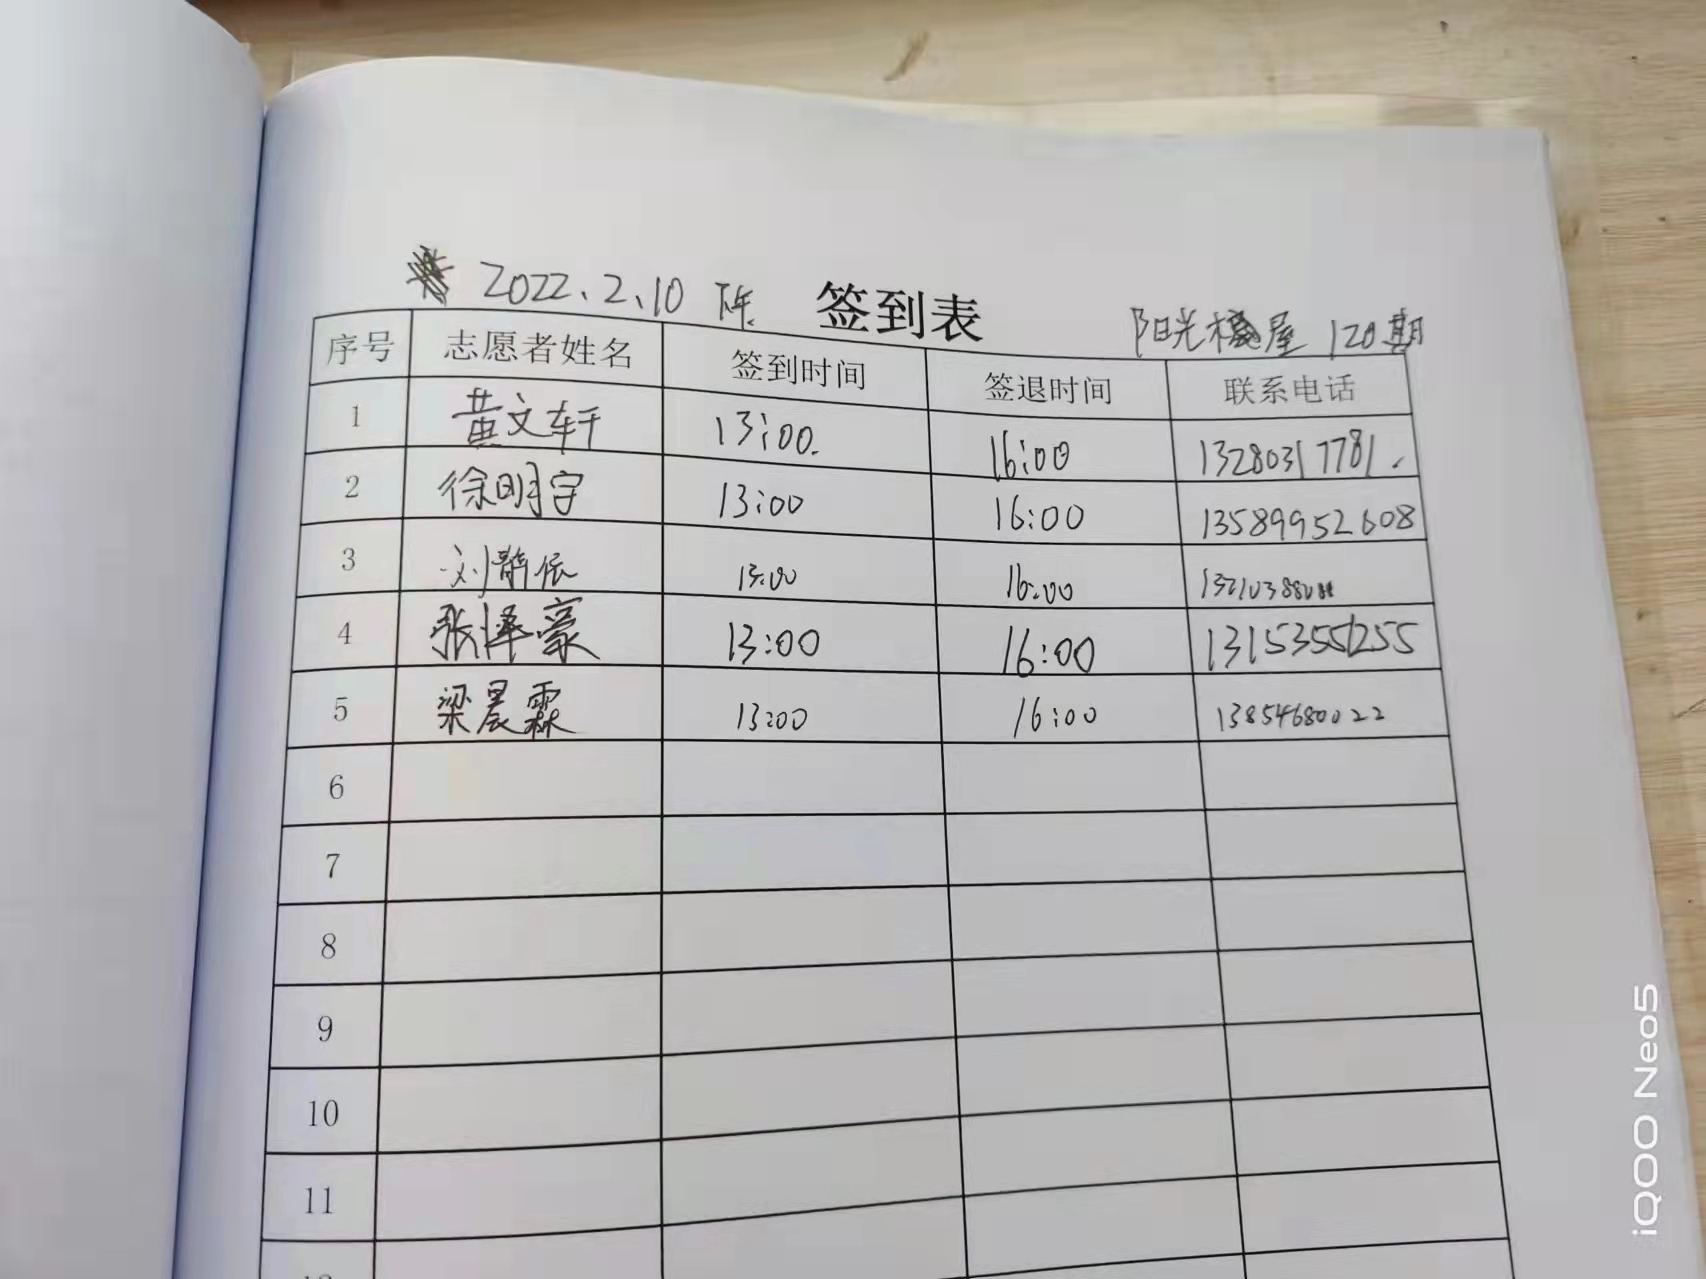 2022.2.10 陈 签到表 阳光 屋 120期
序号 志愿者姓名 签到时间 签退时间 联系电话
1 黄文轩 13:00. 16:00 13280317781.
2 徐明宇 13:00 16:00 13589952608
3 刘静依 13:00 16:00
4 张泽豪 13:00 16:00 13153551255
5 梁晨霖 13:00 16:00 13854680022
6
7
8
9
10
11
iQOO Neo5